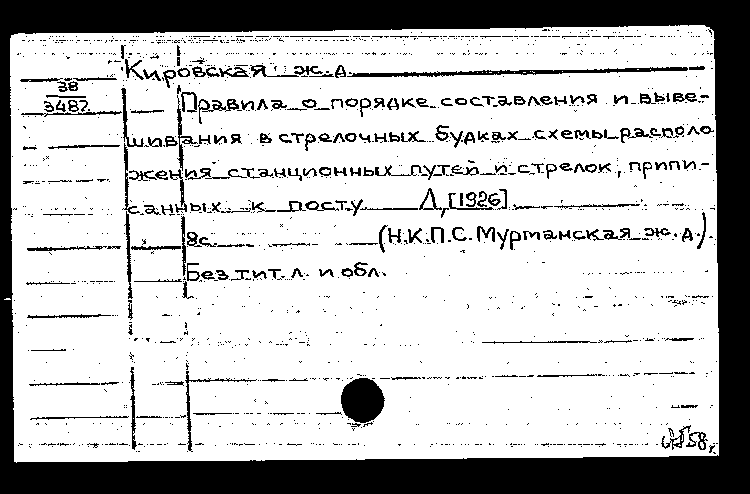 Кировская ж.д.
38
3487
Правила о порядке составления и выве-
шивания в стрелочных будках схемы располо
жения станционных путей и стрелок, припи-
санных к посту Л, [1926]
8с. (Н.К.П.С. Мурманская ж.д.)
Без тит. л. и обл.
58г.